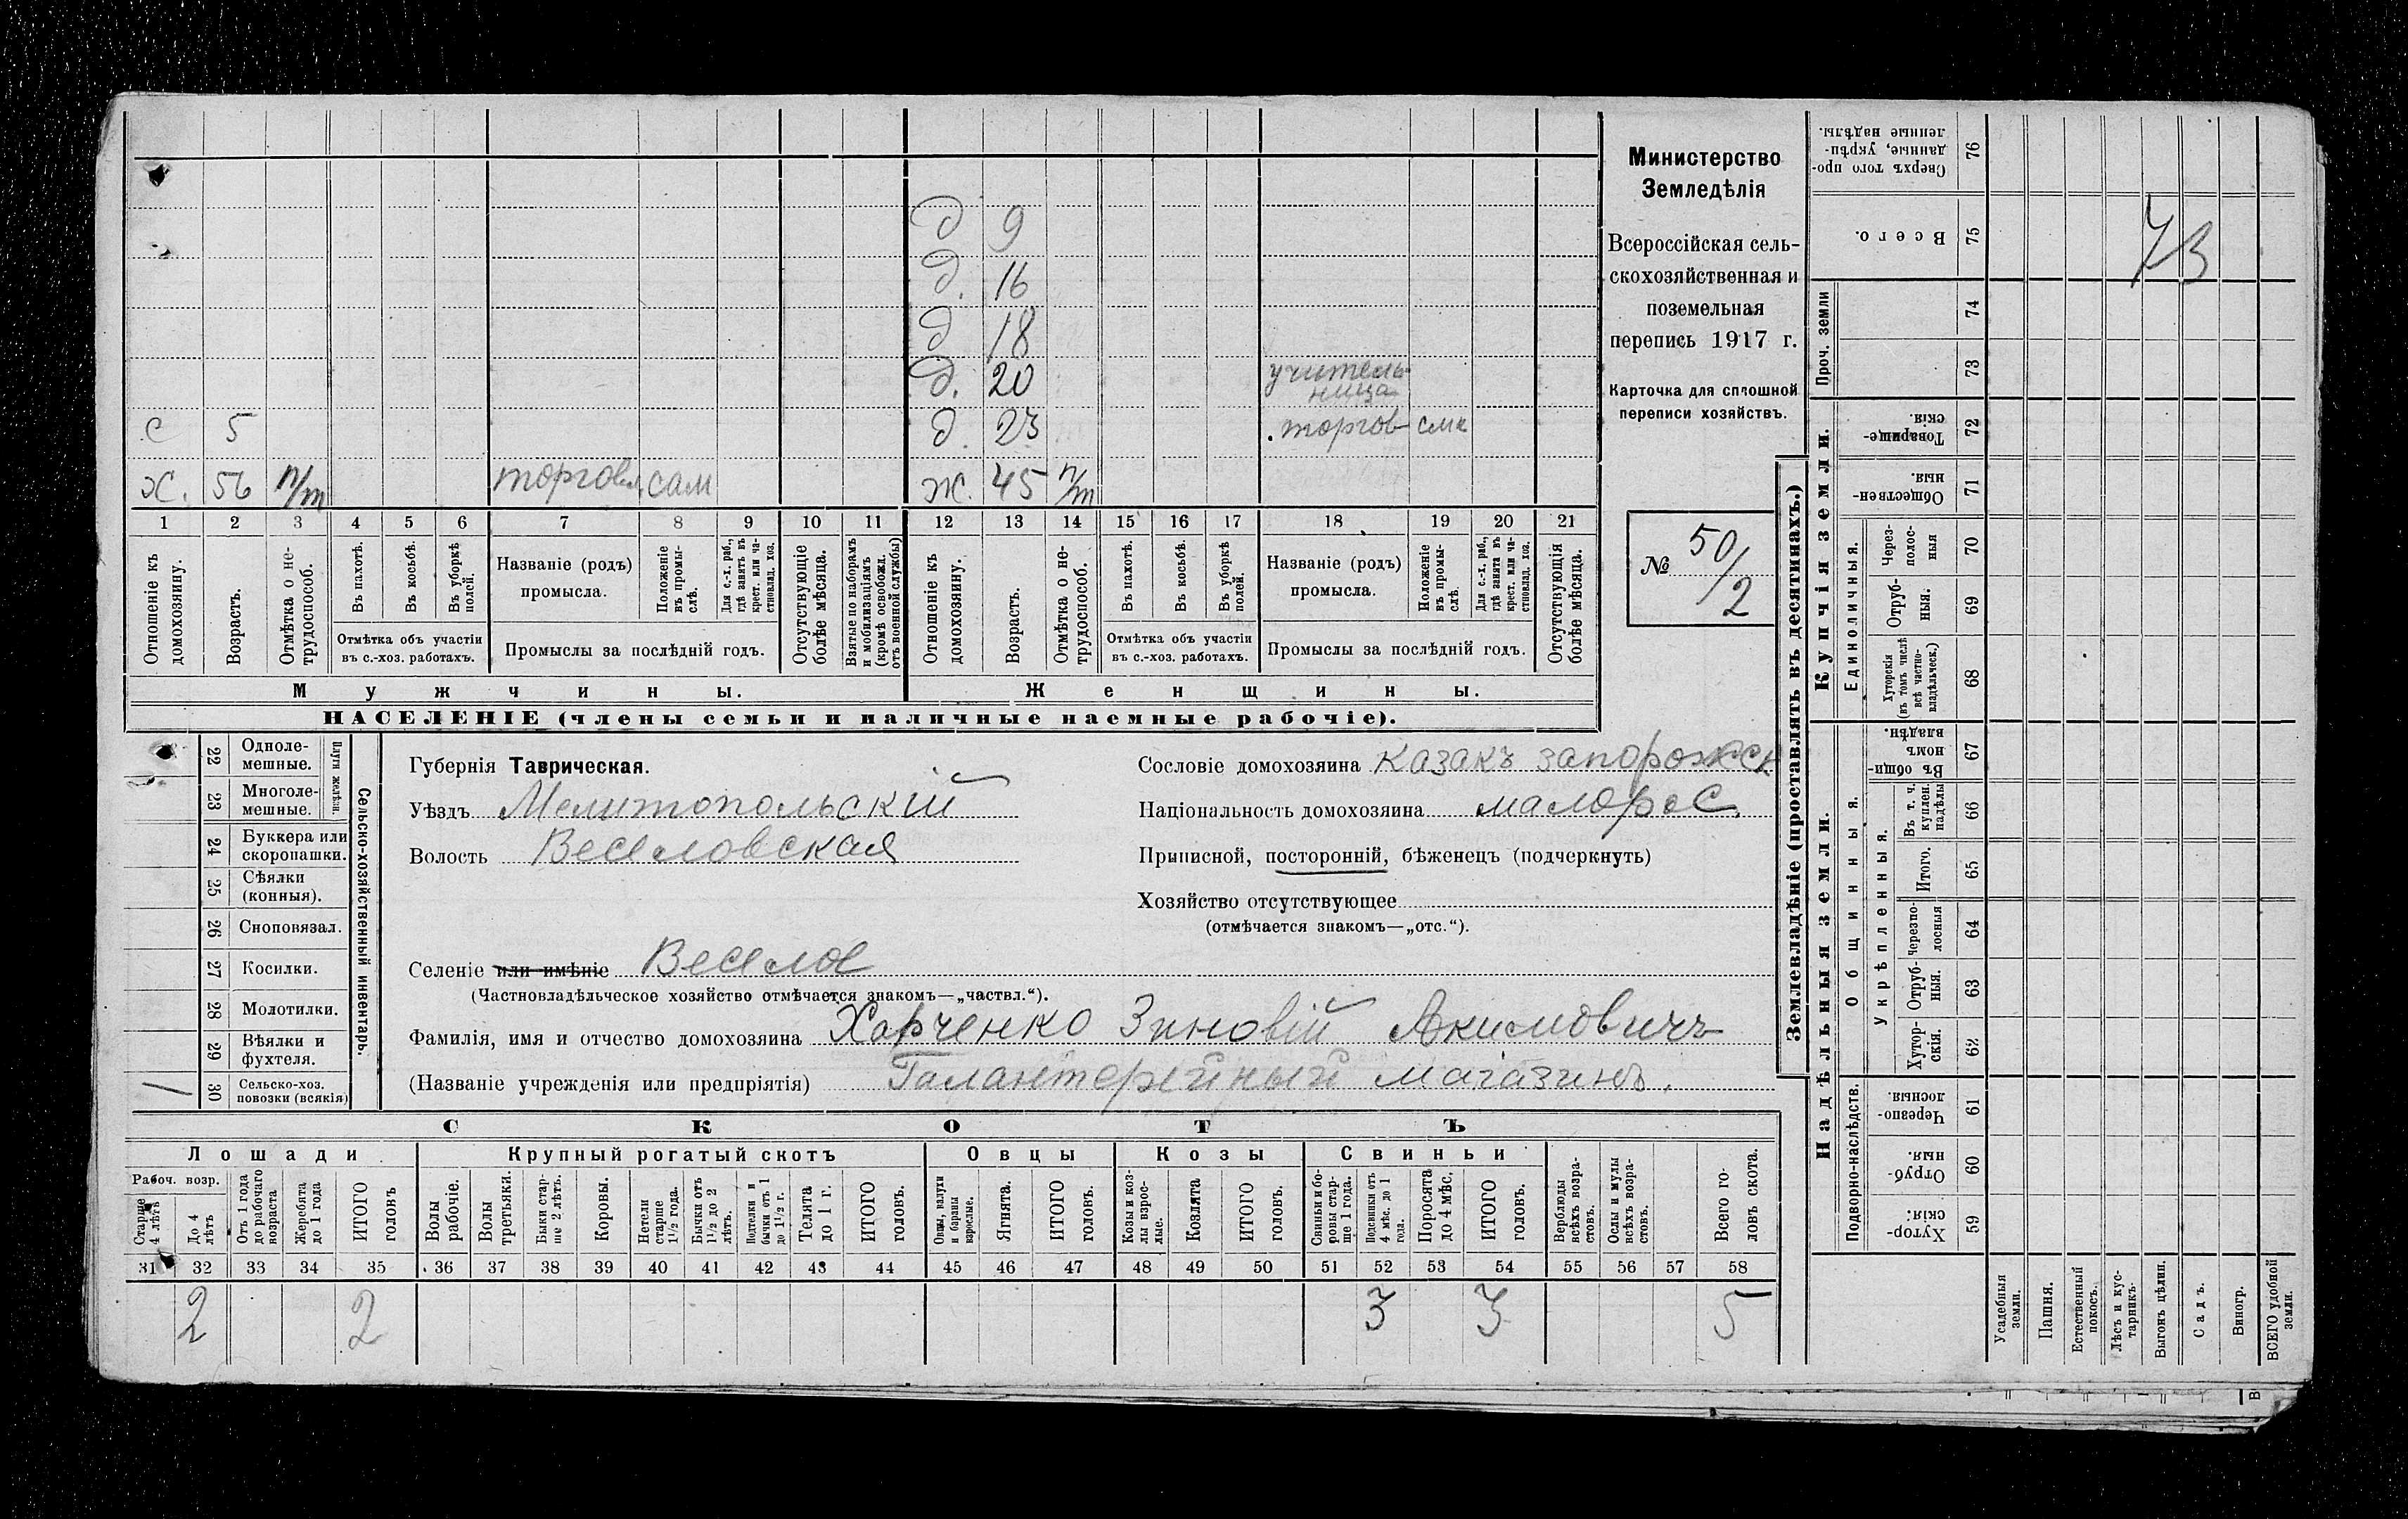 д 9
д. 16
д 18
д. 20 учитель-
ница
с 5 д. 23 торгов сам
ж. 56 п/т торговл. сам ж. 45 п/т
1 2 3 4 5 6 7 8 9 10 11 12 13 14 15 16 17 18 19 20 21
Отношеніе къ домохозяину.
Возрастъ.
Отмѣтка о не-трудоспособ.
Въ пахотѣ.
Въ косьбѣ.
Въ уборкѣ полей.
Отмѣтка объ участіи
въ с.-хоз. работахъ.
Названіе (родъ)
промысла.
Положеніе въ промы-слѣ.
Для с.-х. раб., гдѣ занятъ въ крест. или ча-стновлад. хоз.
Промыслы за послѣдній годъ.
Отсутствующіе болѣе мѣсяца.
Взятые по наборамъ и мобилизаціямъ (кромѣ освобожд. отъ военной службы)
Отношеніе къ домохозяину.
Возрастъ.
Отмѣтка о не-трудоспособ.
Въ пахотѣ.
Въ косьбѣ.
Въ уборкѣ полей.
Отмѣтка объ участіи
въ с.-хоз. работахъ.
Названіе (родъ)
промысла.
Положеніе въ промы-слѣ.
Для с.-х. раб., гдѣ занята въ крест. или ча-стновлад. хоз.
Промыслы за послѣдній годъ.
Отсутствующія болѣе мѣсяца.
Мужчины. Женщины.
НАСЕЛЕНІЕ (члены семьи и наличные наемные рабочіе).
Министерство
Земледѣлія
Всероссійская сель-
скохозяйственная и
поземельная
перепись 1917 г.
Карточка для сплошной
переписи хозяйствъ.
№ 50/2
22 Одноле-
мешные.
23 Многоле-
мешные.
Плуги желѣзн.
24 Буккера или
скоропашки.
25 Сѣялки
(конныя).
26 Сноповязал.
27 Косилки.
28 Молотилки.
29 Вѣялки и
фухтеля.
1 30 Сельско-хоз.
повозки (всякія)
Сельско-хозяйственный инвентарь.
Губернія Таврическая.
Уѣздъ Мелитопольскій
Волость Веселовская
Сословіе домохозяина казакъ запорожск
Національность домохозяина малорос.
Приписной, посторонній, бѣженецъ (подчеркнуть)
Хозяйство отсутствующее
(отмѣчается знакомъ—„отс.“).
Селеніе или имѣніе Веселое
(Частновладѣльческое хозяйство отмѣчается знакомъ—„частвл.“).
Фамилія, имя и отчество домохозяина Харченко Зиновій Акимовичъ
(Названіе учрежденія или предпріятія) Галантерейный магазинъ.
СКОТЪ
Лошади Крупный рогатый скотъ Овцы Козы Свиньи
Рабоч. возр.
Старше 4 лѣтъ
До 4 лѣтъ
Отъ 1 года до рабочаго возраста
Жеребята до 1 года
ИТОГО головъ
Волы рабочіе.
Волы третьяки.
Быки стар-ше 2 лѣтъ.
Коровы.
Нетели старше 1½ года.
Бычки отъ 1½ до 2 лѣтъ.
Подтелки и бычки отъ 1 до 1½ г.
Телята до 1 г.
ИТОГО головъ.
Овцы, валухи и бараны взрослые.
Ягнята.
ИТОГО головъ.
Козы и коз-лы взрос-лые.
Козлята
ИТОГО головъ.
Свиньи и бо-ровы стар-ше 1 года.
Подсвинки отъ 4 мѣс. до 1 года.
Поросята до 4 мѣс.
ИТОГО головъ.
Верблюды всѣхъ возра-стовъ.
Ослы и мулы всѣхъ возра-стовъ.
Всего го-ловъ скота.
31 32 33 34 35 36 37 38 39 40 41 42 43 44 45 46 47 48 49 50 51 52 53 54 55 56 57 58
2 2 3 3 5
Землевладѣніе (проставлять въ десятинахъ.)
Сверхъ того про-данные, укрѣп-ленные надѣлы. 76
Всего. 75
73
Проч. земли
74
73
Купчія земли.
Товарище-скія. 72
Обществен-ныя. 71
Единоличныя.
Через-полос-ныя 70
Отруб-ныя. 69
Хуторскія (въ томъ числѣ всѣ частно-владѣльческ.) 68
Надѣльныя земли.
Общинныя.
Въ общин-номъ владѣн. 67
Укрѣпленныя.
Въ т. ч. куплен. надѣлы 66
Итого. 65
Черезпо-лосныя 64
Отруб-ныя. 63
Хутор-скія. 62
Подворно-наслѣдств.
Черезпо-лосныя. 61
Отруб-ныя. 60
Хутор-скія. 59
Усадебныя земли.
Пашня.
Естественный покосъ.
Лѣсъ и кус-тарникъ.
Выгонъ цѣлин.
Садъ.
Виногр.
ВСЕГО удобной земли.